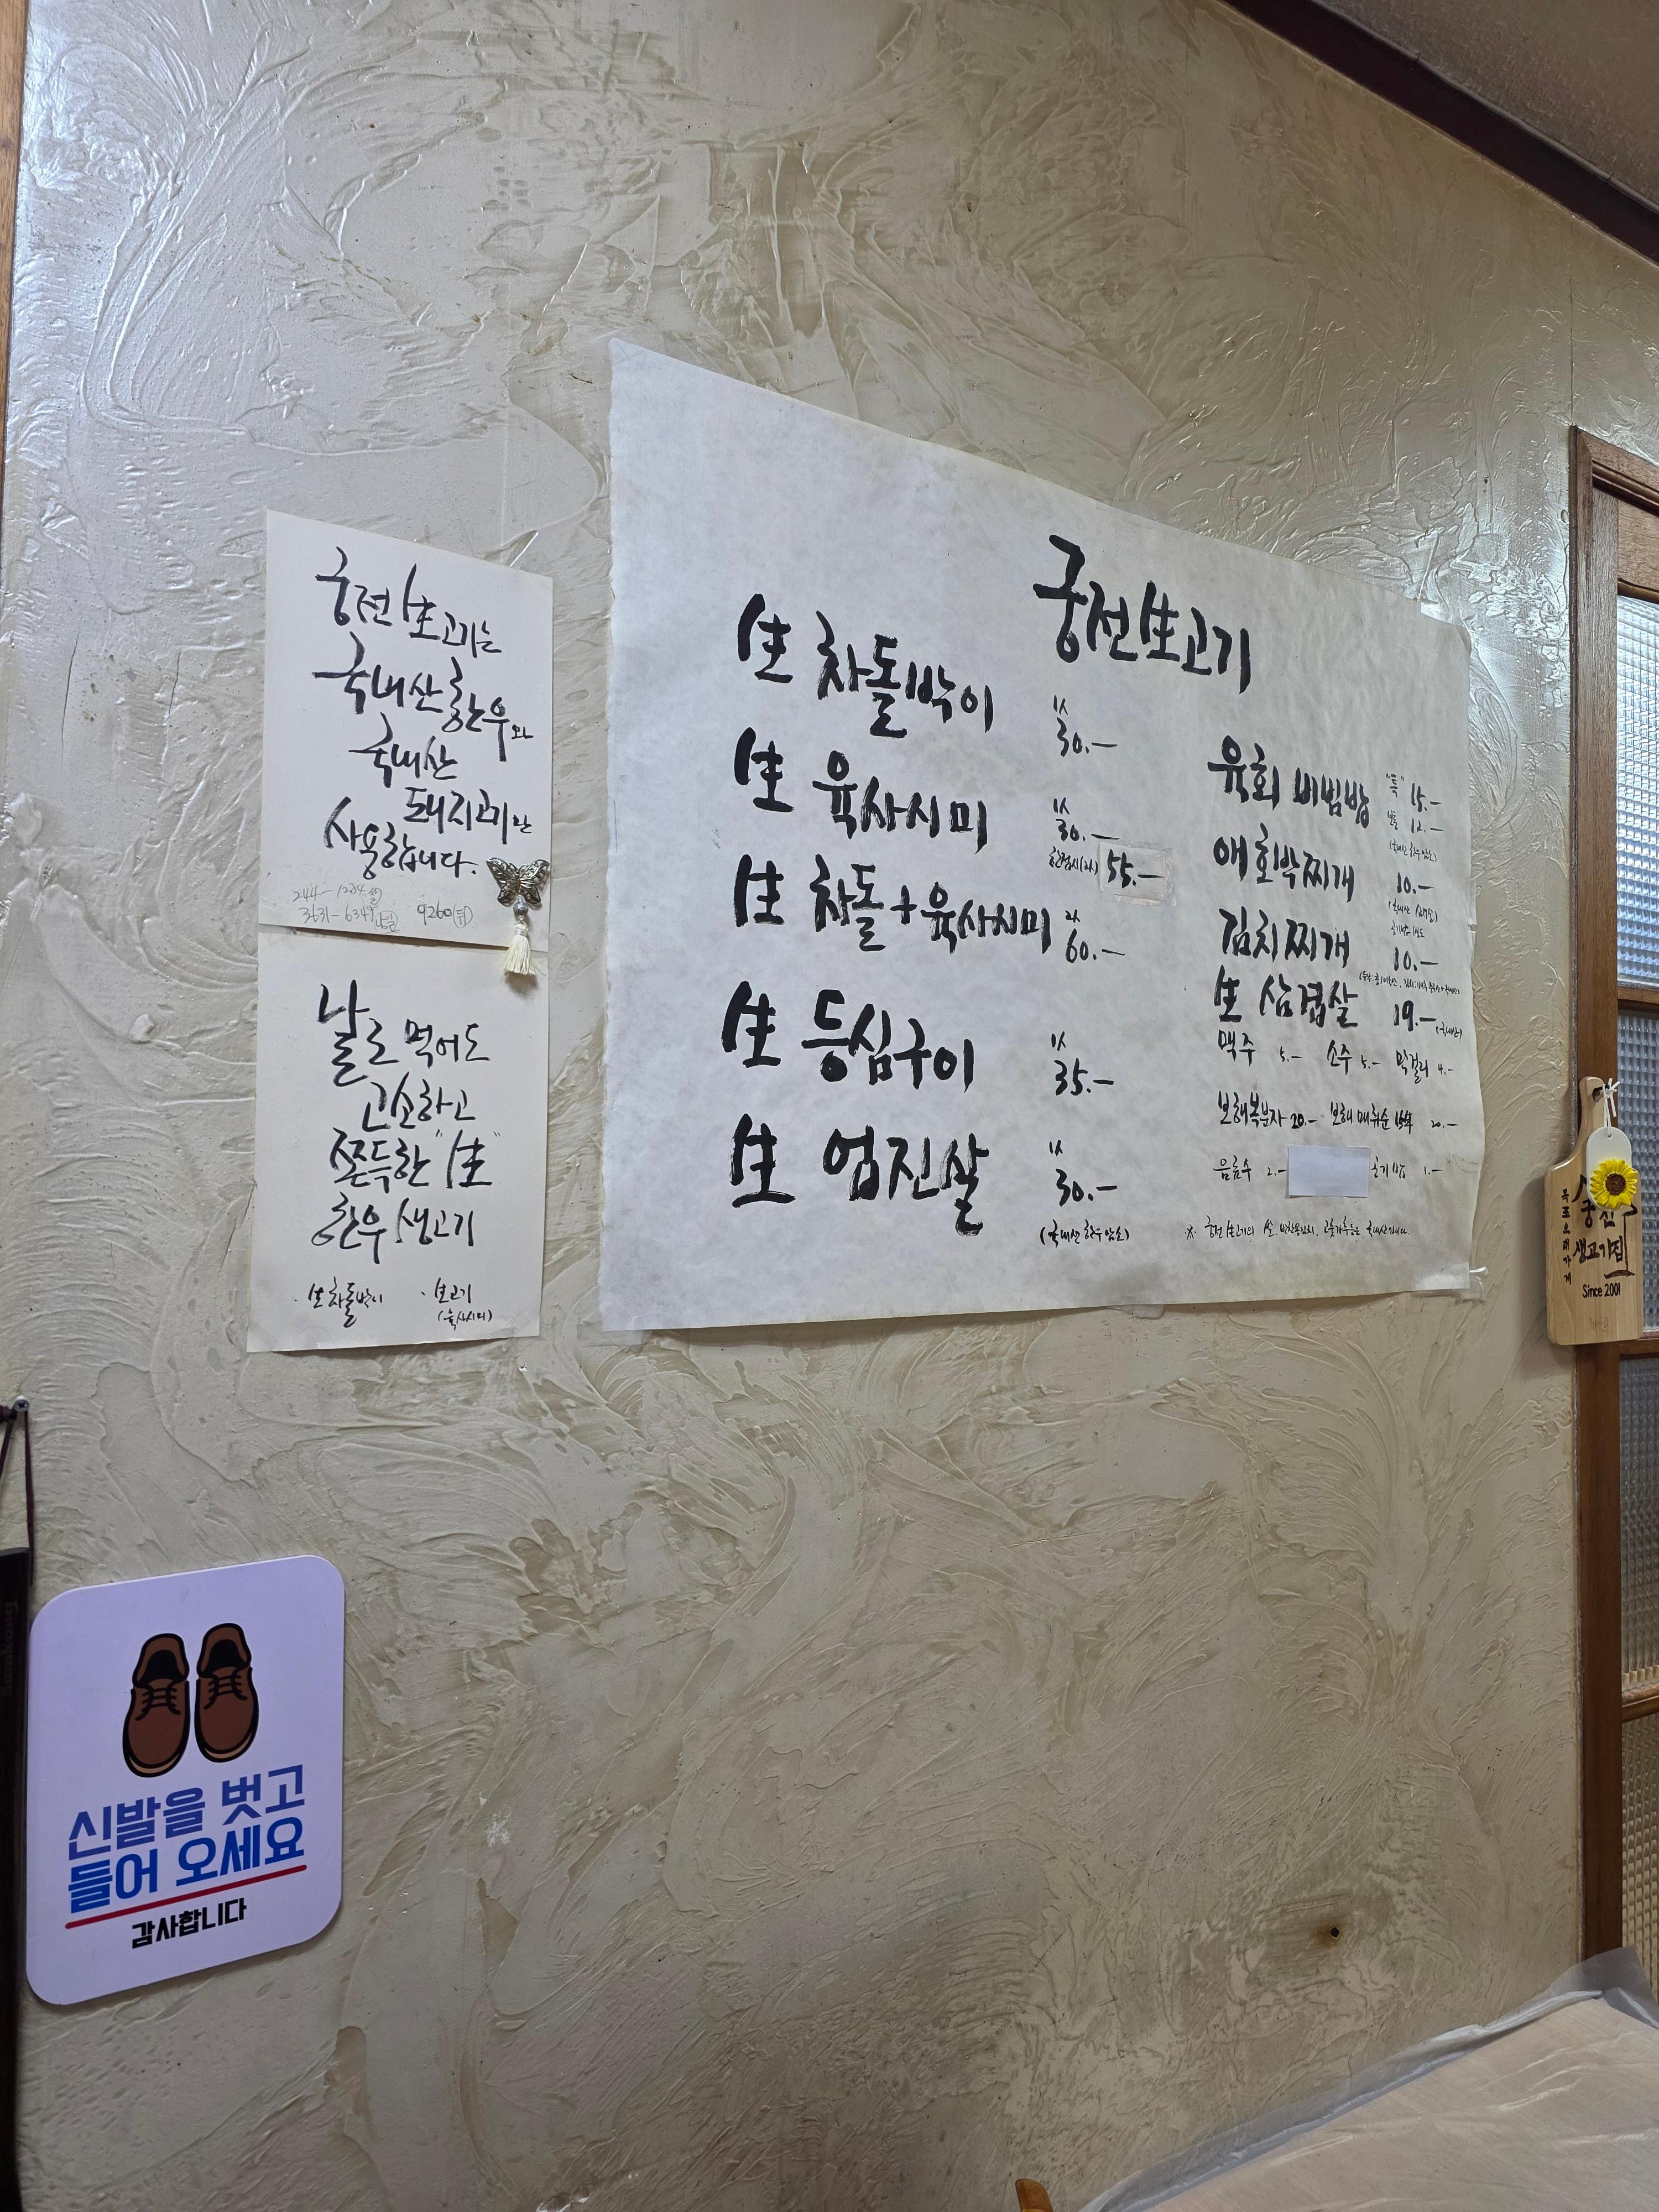 궁전 生고기는
국내산 한우와
국내산
돼지고기만
사용합니다.
244-1284
3631-6349
9260(뒤)
날로 먹어도
고소하고
쫀득한 "生"
한우 생고기
· 生차돌박이 · 生고기
(육사시미)
궁전生고기
生 차돌박이 1人 30.-
生 육사시미 1人 30.-
55.-
生 차돌+육사시미 2人 60.-
生 등심구이 1人 35.-
生 업진살 1人 30.-
(국내산 한우 암소)
육회 비빔밥 "특" 15.-
보통 12.-
(국내산 한우 암소)
애호박찌개 10.-
김치찌개 10.-
生 삼겹살 19.-
(국내산)
맥주 5.- 소주 5.- 막걸리 4.-
보해복분자 20.- 보해 매취순 20.-
음료수 2.- 공기밥 1.-
※ 궁전生고기의 쌀, 고춧가루는 국내산입니다.
목포오래가게
궁전
생고기집
Since 2001
신발을 벗고
들어 오세요
감사합니다